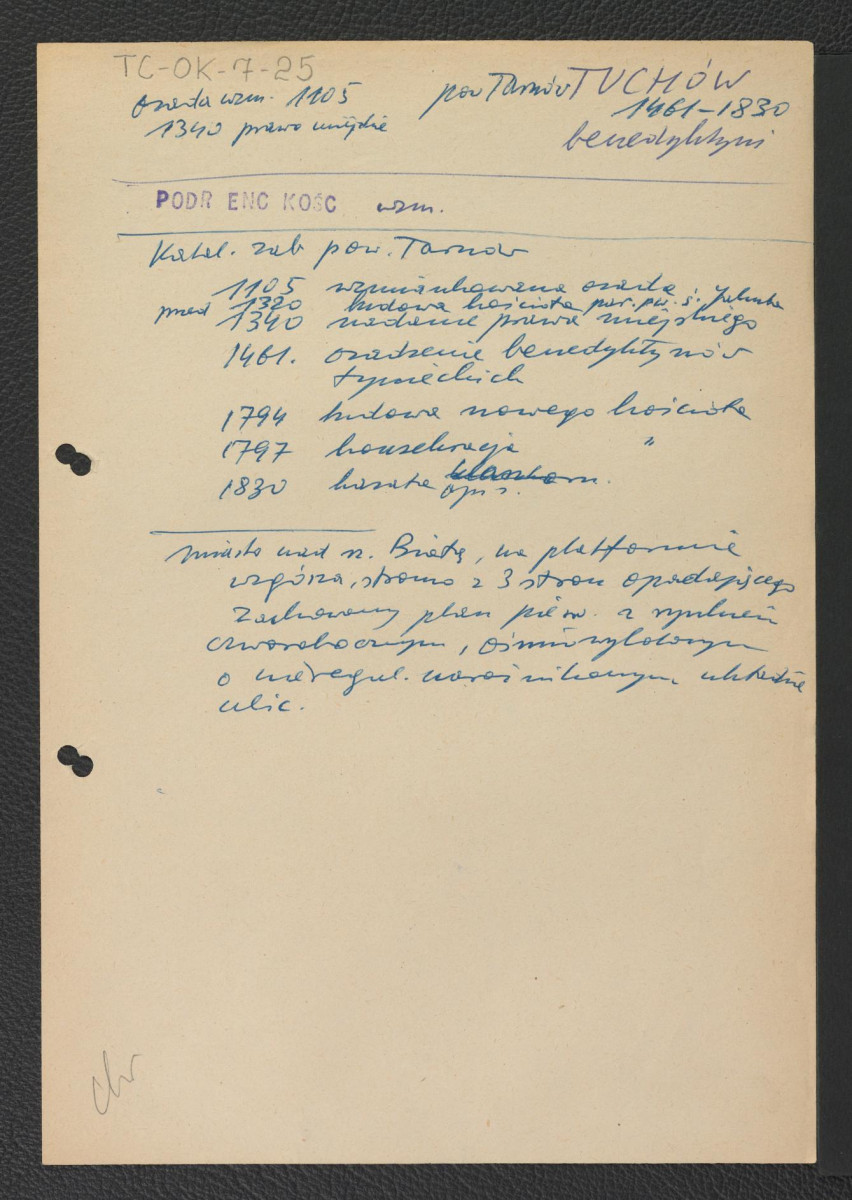 TC-OK-7-25
osada wzm. 1105
1340 prawo miejskie
pow Tarnów TUCHÓW
1461-1830
benedyktyni
PODR ENC KOŚC wzm.
Katal. zab pow. Tarnów
1105 wzmiankowana osada
przed 1320 budowa kościoła par. pw. ś. Jakuba
1340 nadanie prawa miejskiego
1461. osadzenie benedyktynów
tynieckich
1794 budowa nowego kościoła
1797 konsekracja "
1830 kasata klasztoru.
miasto nad rz. Białą, na platformie
wzgórza, stromo z 3 stron opadającego
Zachowany plan pierw. z rynkiem
czworobocznym, ośmiowylotowym
o nieregul. narożnikowym układzie
ulic.